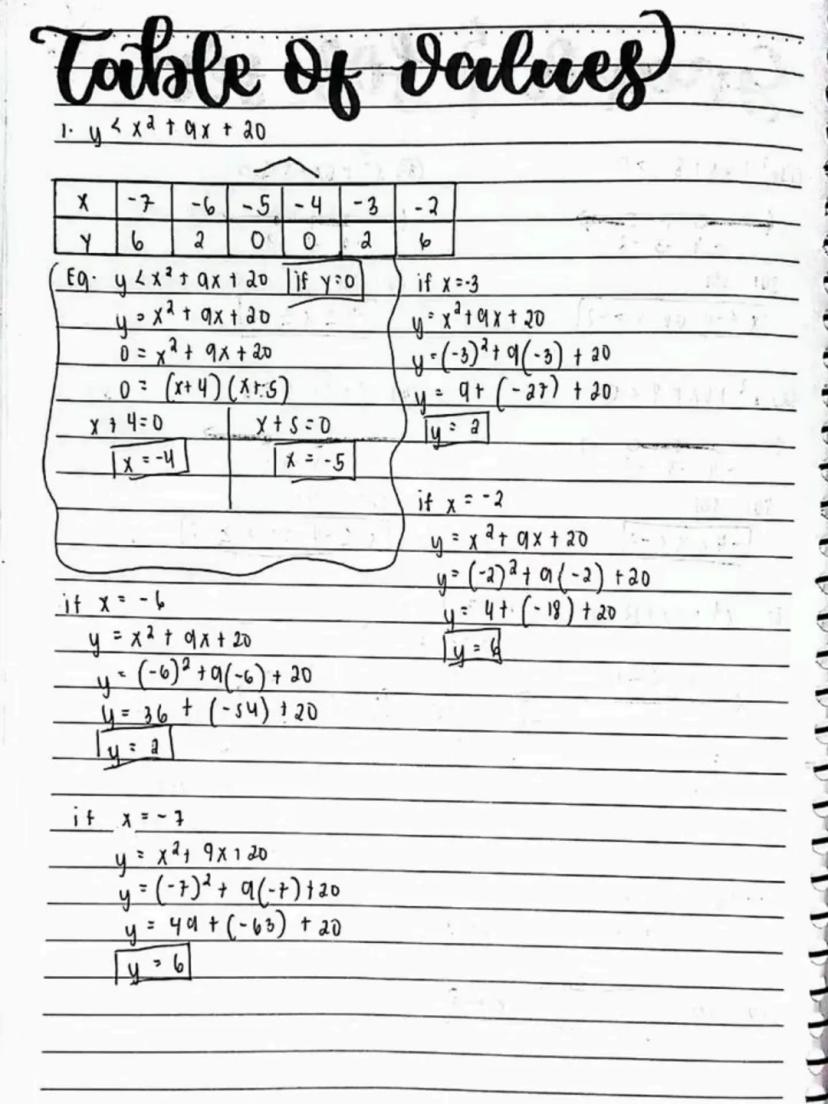 Table of values
1. y < x² + 9x + 20
x -7 -6 -5 -4 -3 -2
y 6 2 0 0 2 6
Eq. y < x² + 9x + 20 if y=0
y = x² + 9x + 20
0 = x² + 9x + 20
0 = (x+4)(x+5)
x + 4 = 0 x + 5 = 0
x = -4 x = -5
if x = -6
y = x² + 9x + 20
y = (-6)² + 9(-6) + 20
y = 36 + (-54) + 20
y = 2
if x = -7
y = x² + 9x + 20
y = (-7)² + 9(-7) + 20
y = 49 + (-63) + 20
y = 6
if x = -3
y = x² + 9x + 20
y = (-3)² + 9(-3) + 20
y = 9 + (-27) + 20
y = 2
if x = -2
y = x² + 9x + 20
y = (-2)² + 9(-2) + 20
y = 4 + (-18) + 20
y = 6